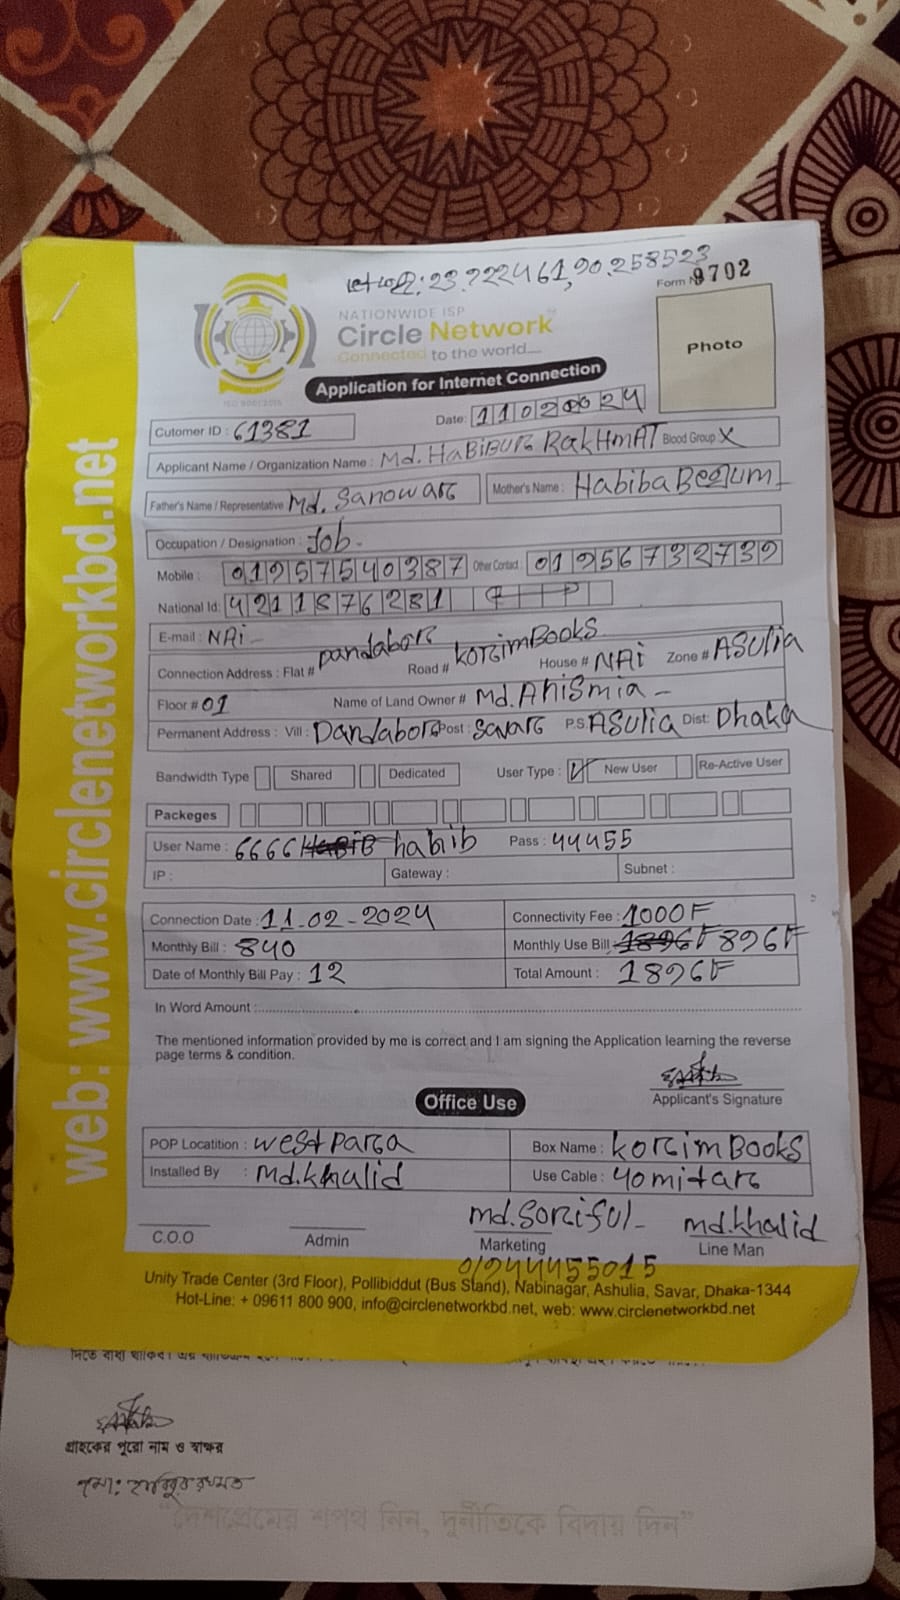 23.722461,90.258523
Form N 9702
NATIONWIDE ISP
Circle Network
Connected to the world....
ISO 9001:2015
Photo
Application for Internet Connection
Date: 11022024
Cutomer ID : 61381
Applicant Name / Organization Name : Md. HaBiBUR RakHmAT Blood Group X
Father's Name / Representative Md. Sanowar Mother's Name : Habiba Begum
Occupation / Designation : Job -
Mobile : 01957540387 Other Contact : 01956732739
National Id: 4211876281
E-mail : NAi -
Connection Address : Flat # Dandabor Road # KorimBooks House # NAi Zone # ASUlia
Floor # 01 Name of Land Owner # Md. Anismia -
Permanent Address : Vill : Dandabor Post : Savar P.S. ASUlia Dist: Dhaka
Bandwidth Type Shared Dedicated User Type : New User Re-Active User
Packeges
User Name : 6666 habib Pass : 44455
IP : Gateway : Subnet :
Connection Date : 11-02-2024 Connectivity Fee : 1000F
Monthly Bill : 840 Monthly Use Bill 896F
Date of Monthly Bill Pay : 12 Total Amount : 1896F
In Word Amount :
The mentioned information provided by me is correct and I am signing the Application learning the reverse
page terms & condition.
Applicant's Signature
Office Use
POP Locatition : West Para Box Name : Korim Books
Installed By : Md.Khalid Use Cable : 40 mitar
md.Soriful- md.khalid
C.O.O Admin Marketing Line Man
01944455015
Unity Trade Center (3rd Floor), Pollibiddut (Bus Stand), Nabinagar, Ashulia, Savar, Dhaka-1344
Hot-Line: + 09611 800 900, info@circlenetworkbd.net, web: www.circlenetworkbd.net
web: www.circlenetworkbd.net
গ্রাহকের পুরো নাম ও স্বাক্ষর
হাবিবুর রহমত
"দেশপ্রেমের শপথ নিন, দুর্নীতিকে বিদায় দিন"